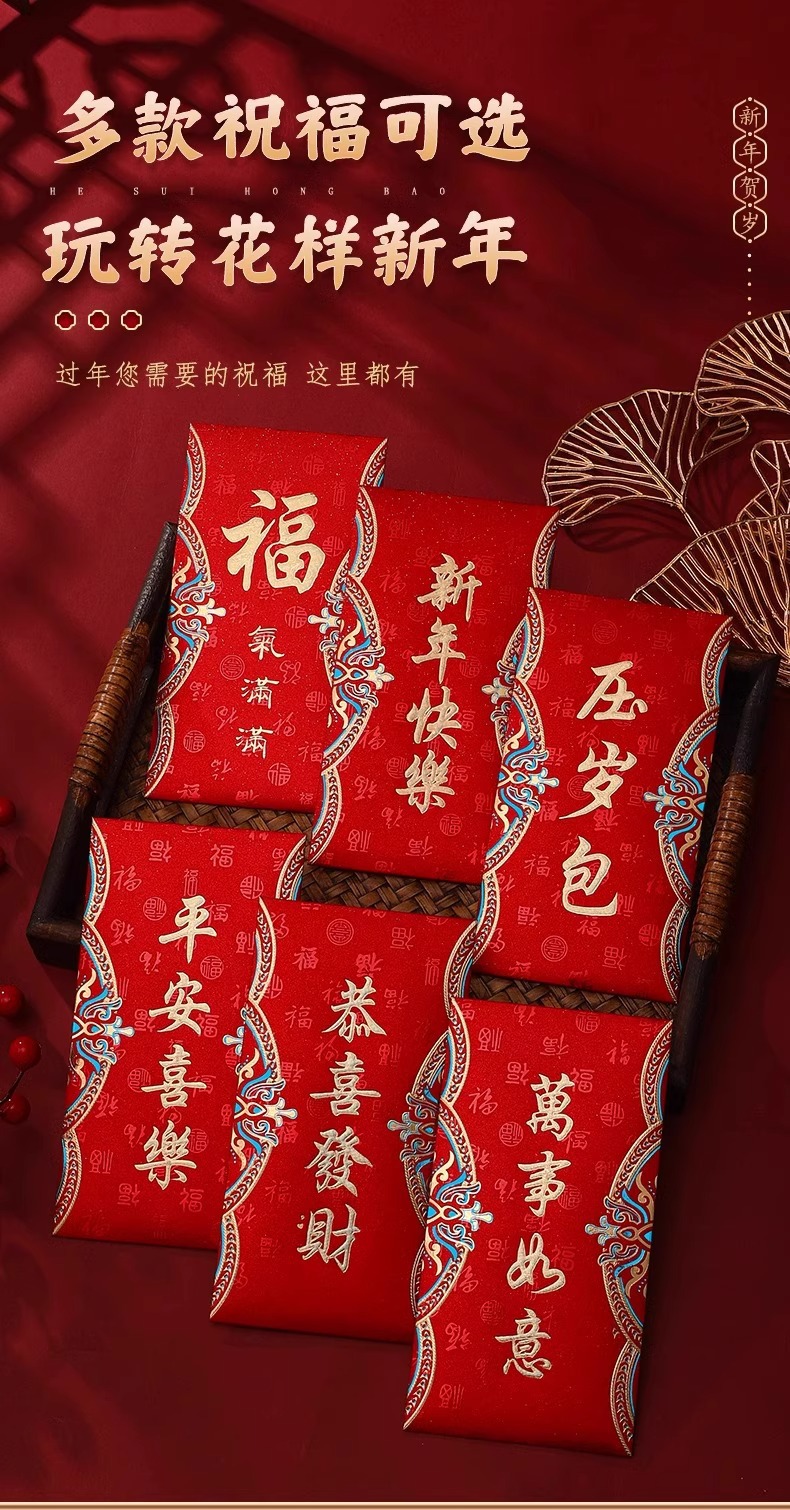 多款祝福可选
HE SUI HONG BAO
玩转花样新年
过年您需要的祝福 这里都有
新年贺岁
福
氣滿滿
新年快樂
压岁包
平安喜樂
恭喜發財
萬事如意